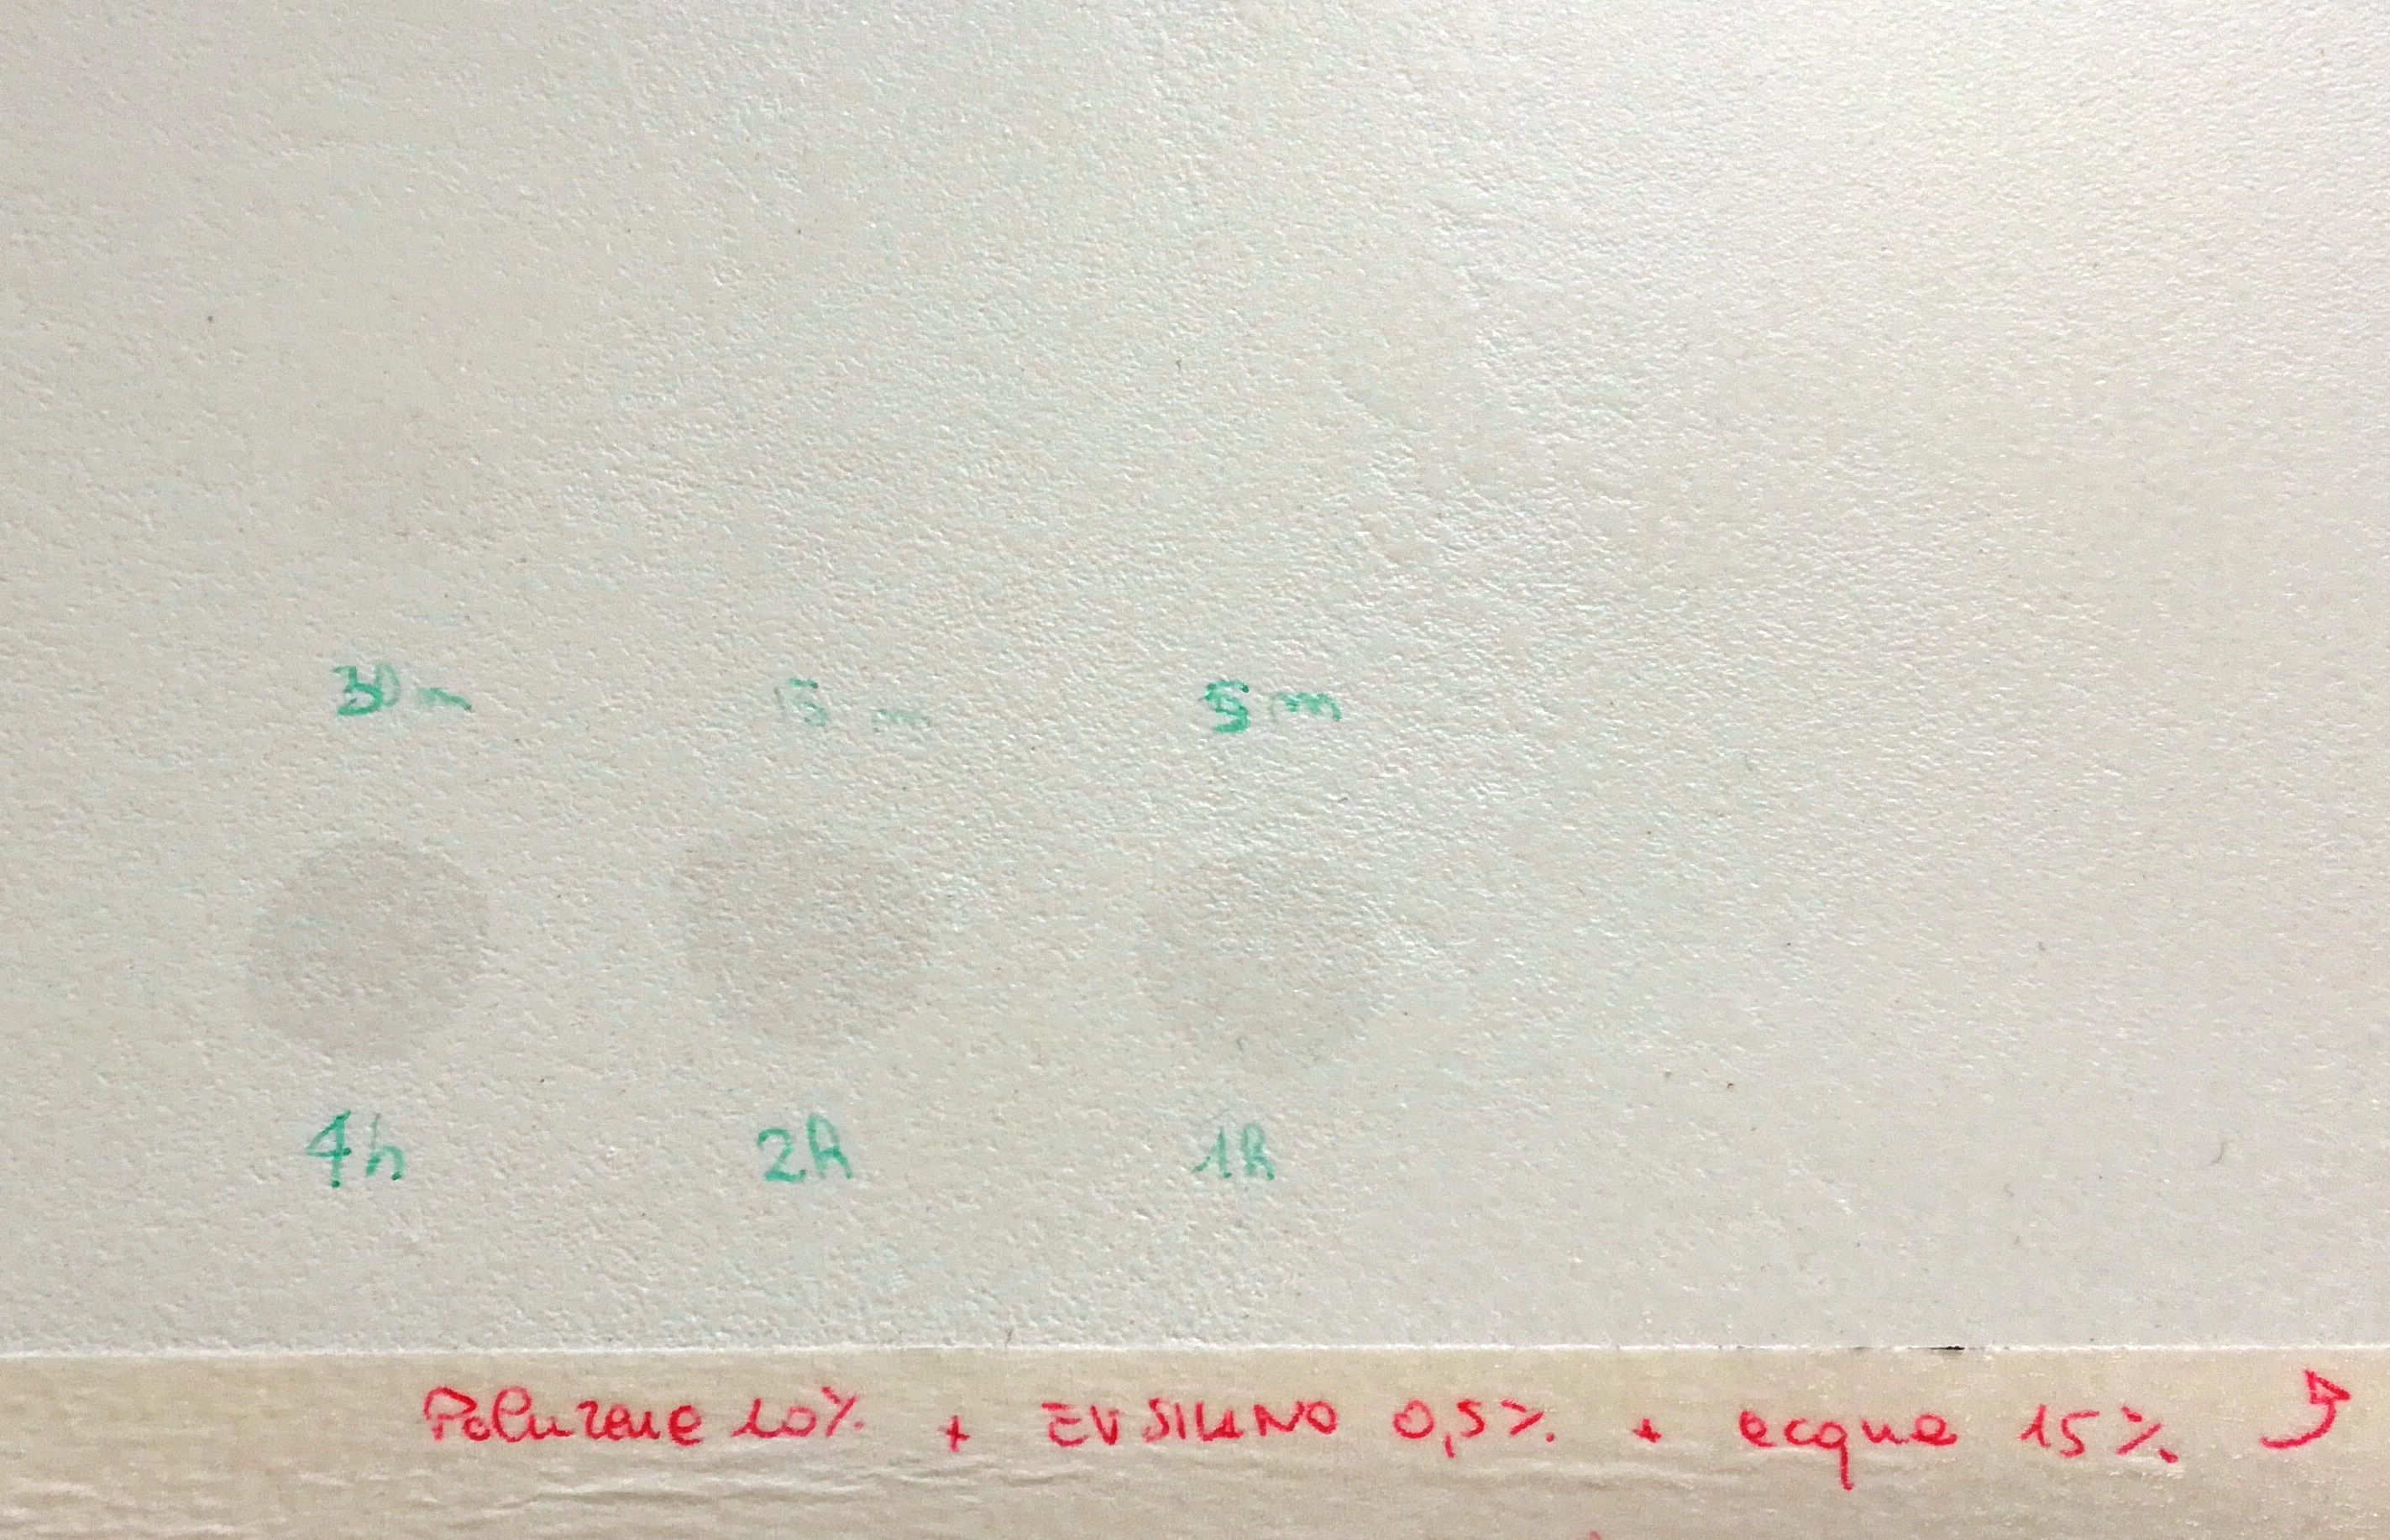 30 m 15 m 5 m
4h 2h 1h
10% + EV SILANO 0,5% + acqua 15%